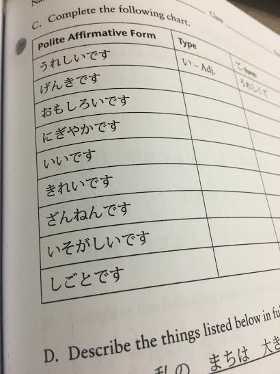 C. Complete the following chart.
Polite Affirmative Form Type て-form
うれしいです い – Adj. うれしくて
げんきです
おもしろいです
にぎやかです
いいです
きれいです
ざんねんです
いそがしいです
しごとです
D. Describe the things listed below in
私の まちは 大き